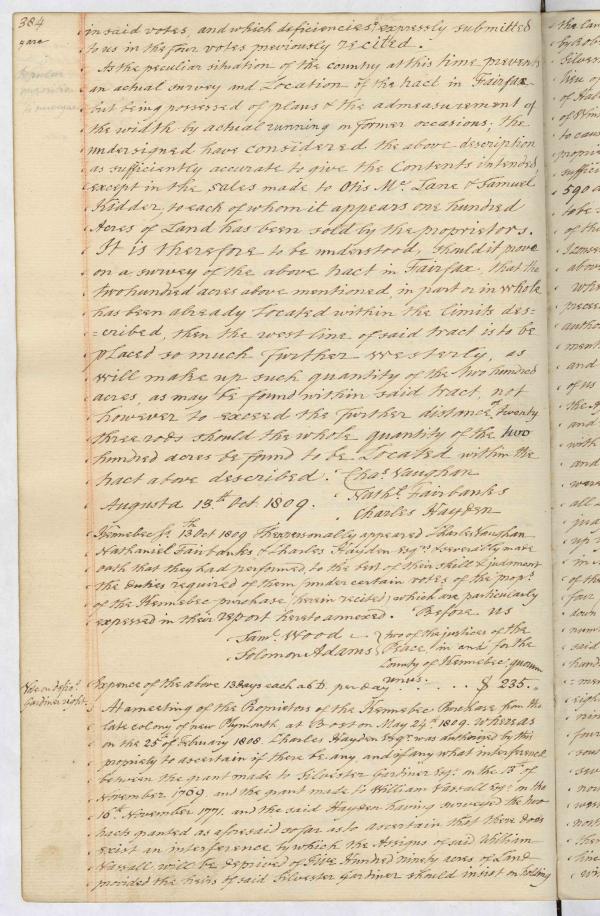 384
in said votes, and which deficiencies expressly submitted
to us in the four votes previously recited.
As the peculiar situation of the country at this time prevents
an actual survey and Location of the tract in Fairfax
but being possessed of plans & the admeasurement of
the width by actual running on former occasions, the
undersigned have considered the above description
as sufficiently accurate to give the Contents intended,
except in the sales made to Otis Mc. Lane & Samuel
Kidder, to each of whom it appears one hundred
Acres of Land has been sold by the proprietors.
It is therefore to be understood, should it prove
on a survey of the above tract in Fairfax, that the
two hundred acres above mentioned, in part or in whole
has been already Located within the limits des=
=cribed, then the west line of said tract is to be
placed so much further westerly, as
will make up such quantity of the two hundred
acres, as may be found within said tract, not
however to exceed the further distance of twenty
three rods should the whole quantity of the two
hundred acres be found to be Located within the
tract above described. Chas. Vaughan
Augusta 13th Oct 1809. Nathl. Fairbanks
Charles Hayden
Kennebec Ss. 13th Oct 1809 Then personally appeared Charles Vaughan
Nathaniel Fairbanks & Charles Hayden Esqrs & severally made
oath that they had performed, to the best of their skill & judgment
the duties required of them (under certain votes of the propr.
of the Kennebec purchase herein recited) which are particularly
expressed in their report hereto annexed. Before us
Saml. Wood } two of the justices of the
Solomon Adams } Peace in and for the
County of Kennebec quorum
unus.
Expence of the above 13 days each at D. per day . . . . . $ 235.
Vote on Silvr.
Gardiner right
At a meeting of the Proprietors of the Kennebec Purchase from the
late colony of new Plymouth at Boston May 24th 1809. Whereas
on the 25th of February 1808. Charles Hayden Esqr. was authorized by this
propriety to ascertain if there be any, and if any what interference
between the grant made to Silvester Gardiner Esqr. on the 13th of
November 1769. and the grant made to William Vassall Esqr. on the
16th November 1771. and the said Hayden having surveyed the two
tracts granted as aforesaid so far as to ascertain that there does
exist an interference by which the Assigns of said William
Vassall will be deprived of Five Hundred ninety acres of Land
provided the heirs of said Silvester Gardiner should insist on holding